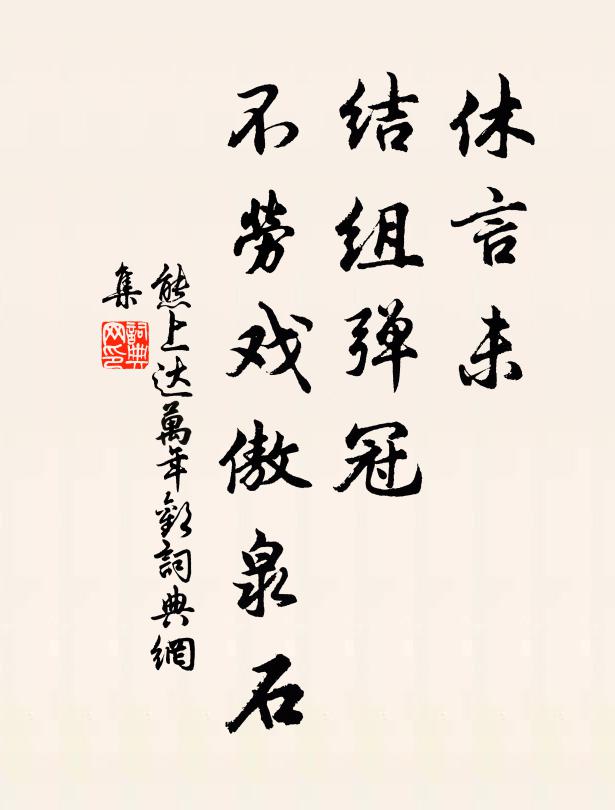 休言未
结组弹冠
不劳戏傲泉石
熊上达萬年歡詞典網
集
詞典
网印